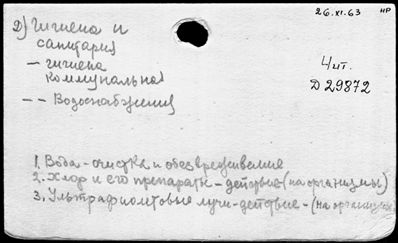 26.XI.63 НР
2) Гигиена и
санитария
– гигиена
коммунальная
– – Водоснабжения
4 ит.
Д 29872
1. Вода – очистка и обезвреживание
2. Хлор и его препараты – действие – (на организмы)
3. Ультрафиолетовые лучи – действие – (на организм